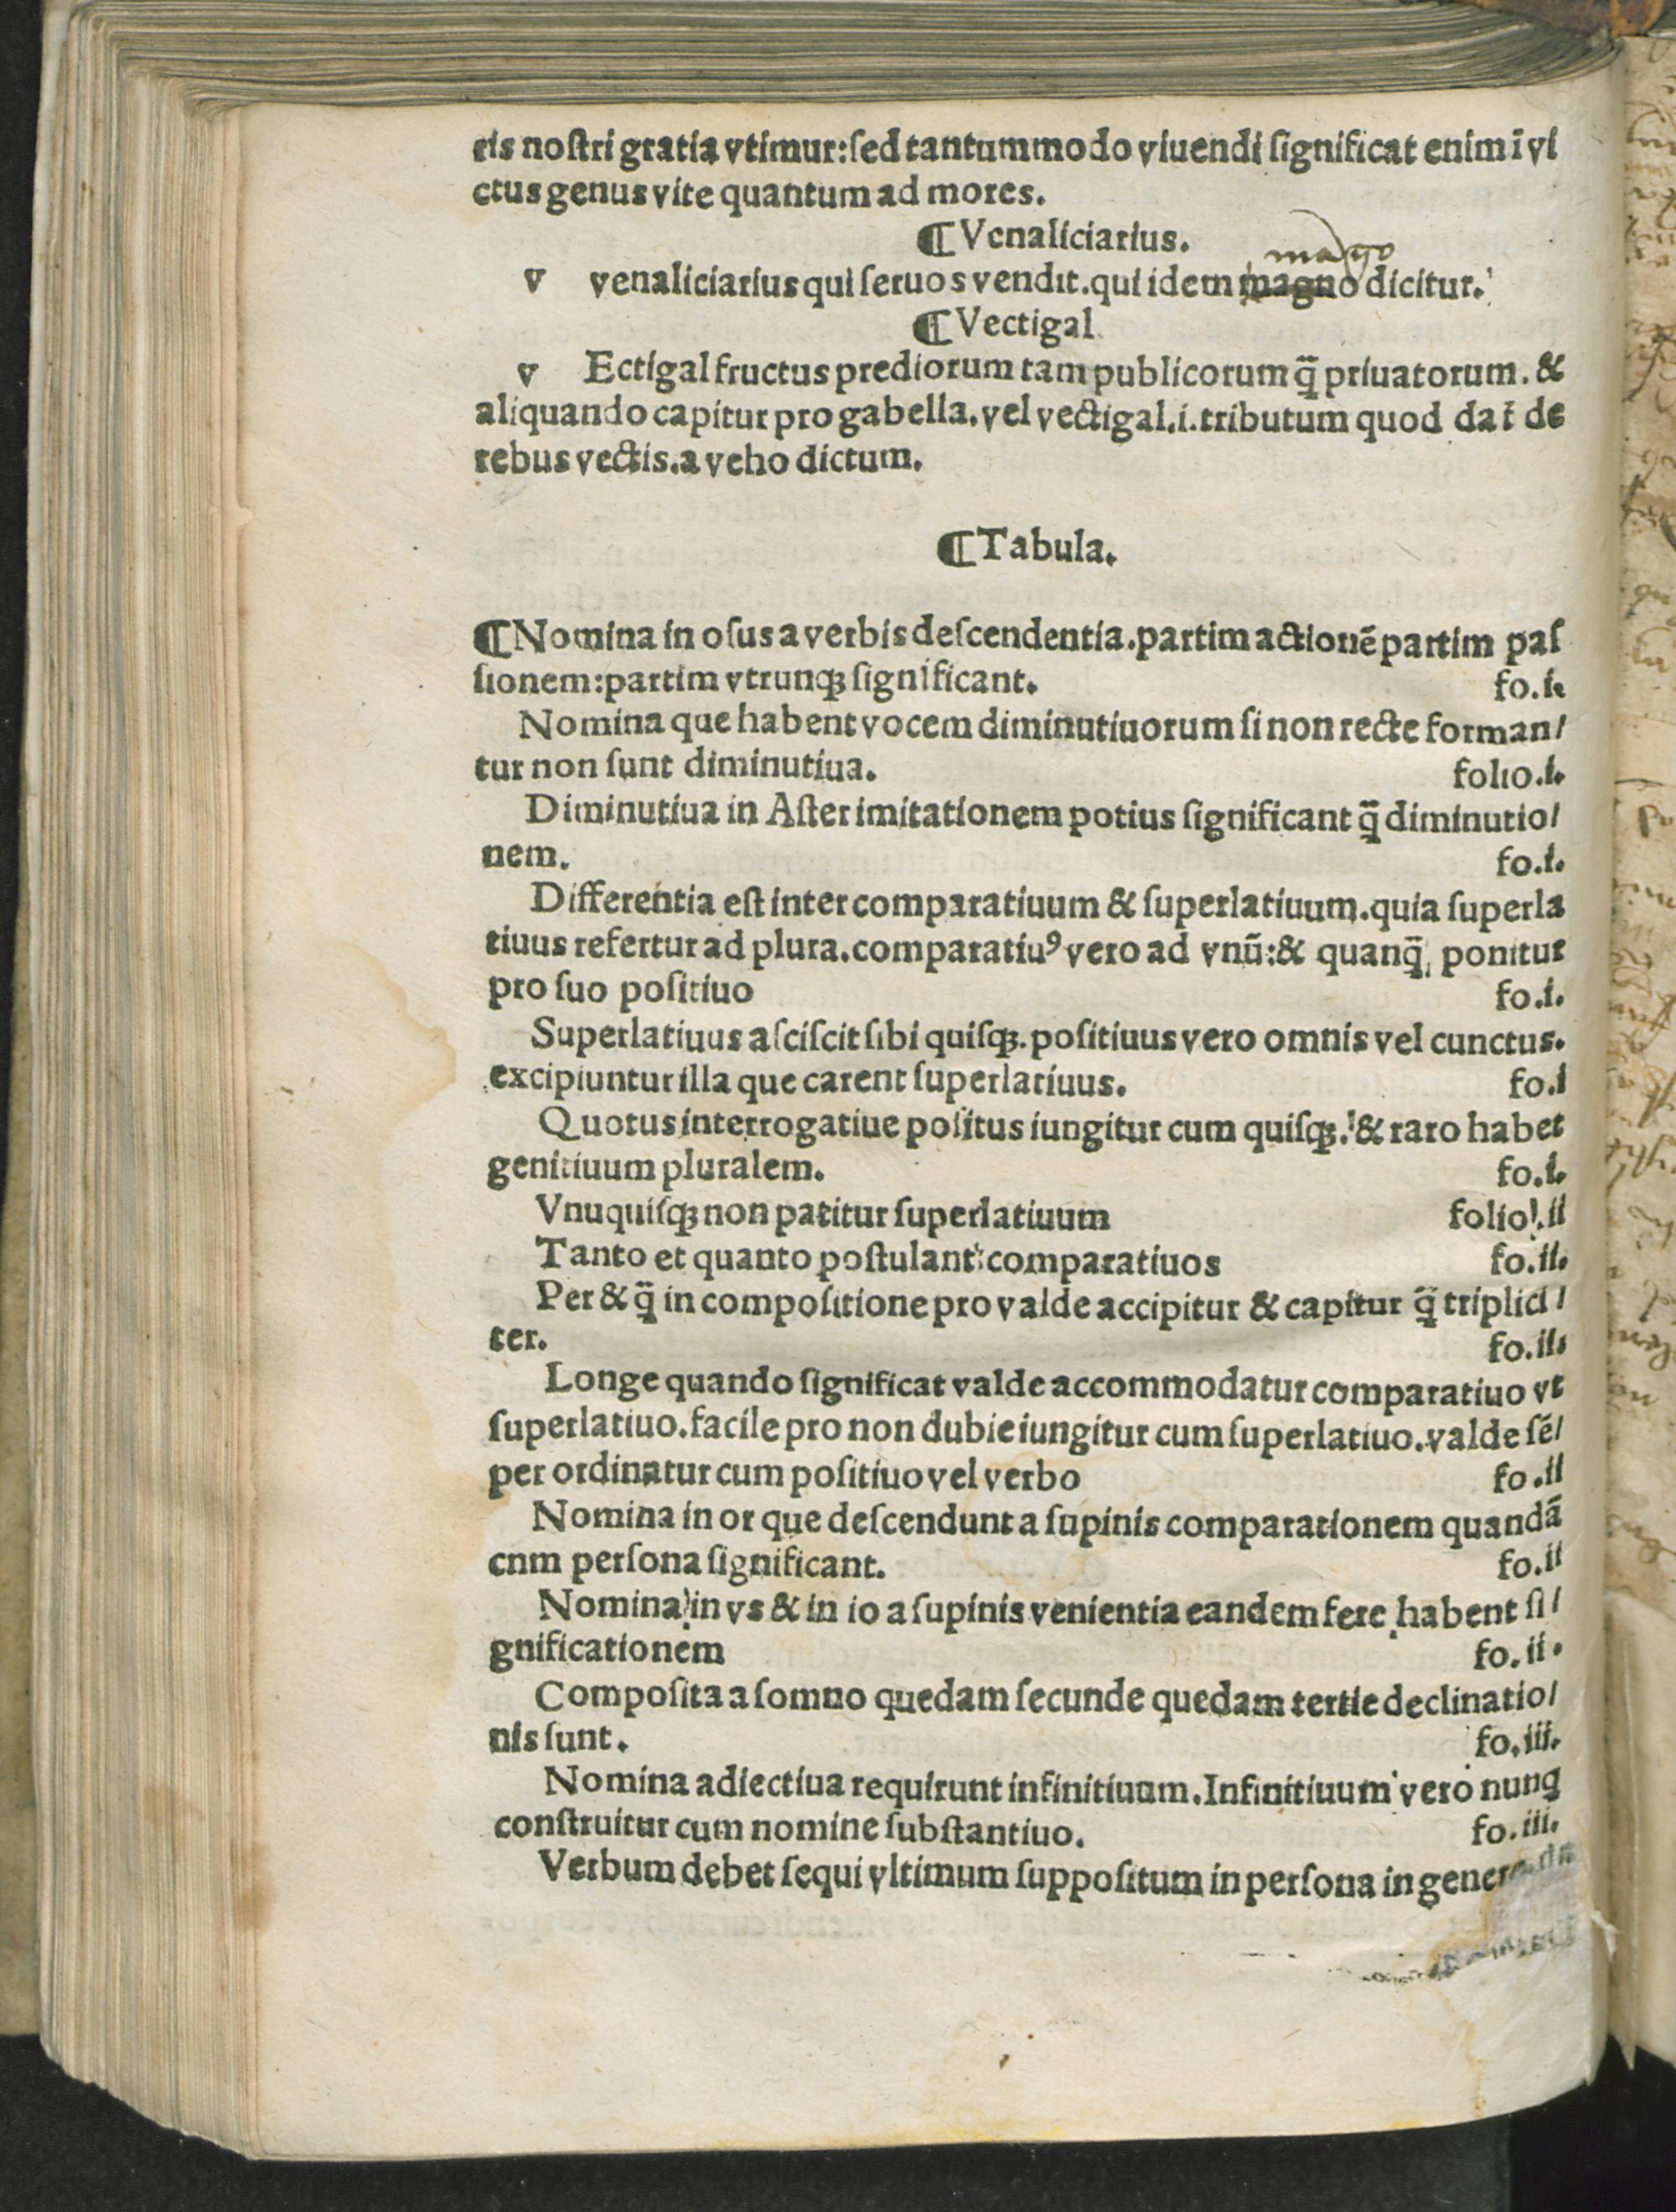 ris noſtri gratia vtimur:ſed tantummodo viuendi ſignificat enim ī vi
ctus genus vite quantum ad mores.
¶Venaliciarius.
mango
v venaliciarius qui ſeruos vendit.qui idem magno dicitur.
¶Vectigal
v Ectigal fructus prediorum tam publicorum q̄ priuatorum. &
aliquando capitur pro gabella.vel vectigal.i.tributum quod dat̄ de
rebus vectis.a veho dictum.
¶Tabula.
¶Nomina in oſus a verbis deſcendentia.partim actionē partim paſ
ſionem:partim vtrunqꝫ ſignificant. fo.i.
Nomina que habent vocem diminutiuorum ſi non recte forman/
tur non ſunt diminutiua. folio.i.
Diminutiua in Aſter imitationem potius ſignificant q̄ diminutio/
nem. fo.i.
Differentia eſt inter comparatiuum & ſuperlatiuum.quia ſuperla
tiuus refertur ad plura.comparatiuꝰ vero ad vnū:& quanq̄ ponitur
pro ſuo poſitiuo fo.i.
Superlatiuus aſciſcit ſibi quiſqꝫ.poſitiuus vero omnis vel cunctus.
excipiuntur illa que carent ſuperlatiuus. fo.i
Quotus interrogatiue poſitus iungitur cum quiſqꝫ.& raro habet
genitiuum pluralem. fo.i.
Vnuquiſqꝫ non patitur ſuperlatiuum folio.ii
Tanto et quanto poſtulant comparatiuos fo.ii.
Per & q̄ in compoſitione pro valde accipitur & capitur q̄ triplici/
ter. fo.ii.
Longe quando ſignificat valde accommodatur comparatiuo vt
ſuperlatiuo.facile pro non dubie iungitur cum ſuperlatiuo.valde ſē/
per ordinatur cum poſitiuo vel verbo fo.ii
Nomina in or que deſcendunt a ſupinis comparationem quandā
cnm perſona ſignificant. fo.ii
Nomina in vs & in io a ſupinis venientia eandem fere habent ſi/
gnificationem fo.ii.
Compoſita a ſomno quedam ſecunde quedam tertie declinatio/
nis ſunt. fo.iii.
Nomina adiectiua requirunt infinitiuum.Infinitiuum vero nunq
conſtruitur cum nomine ſubſtantiuo. fo.iii.
Verbum debet ſequi vltimum ſuppoſitum in perſona in genere